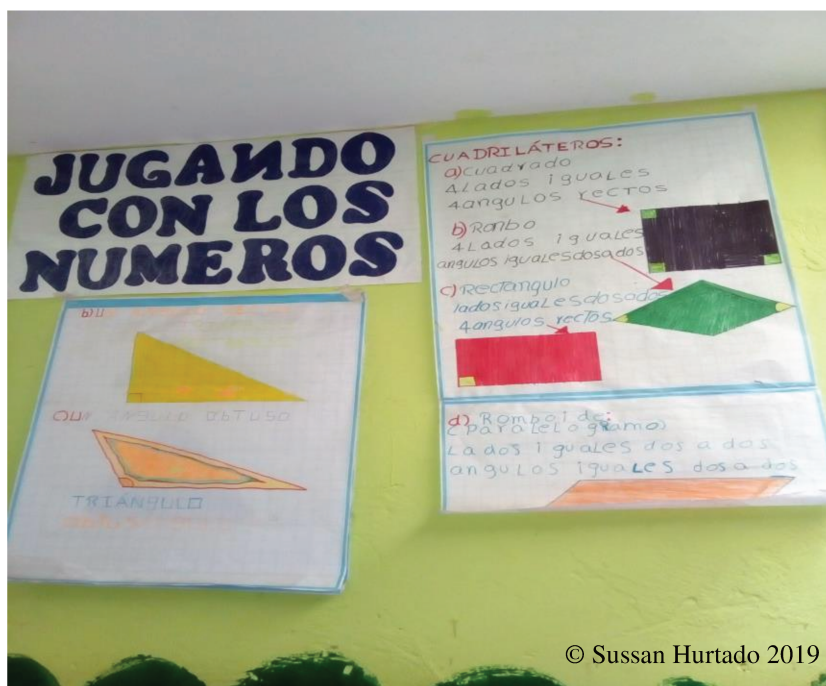 JUGANDO
CON LOS
NUMEROS
CUADRILÁTEROS:
a) cuadrado
4 Lados iguales
4 angulos rectos
b) Ronbo
4 Lados iguales
angulos iguales dos a dos
c) Rectangulo
lados iguales dos a dos
4 angulos rectos
d) Romboide:
(Paralelogramo)
Lados iguales dos a dos
angulos iguales dos a dos
b) U
c) UN ANGULO ObTUSO
TRIANGULO
© Sussan Hurtado 2019